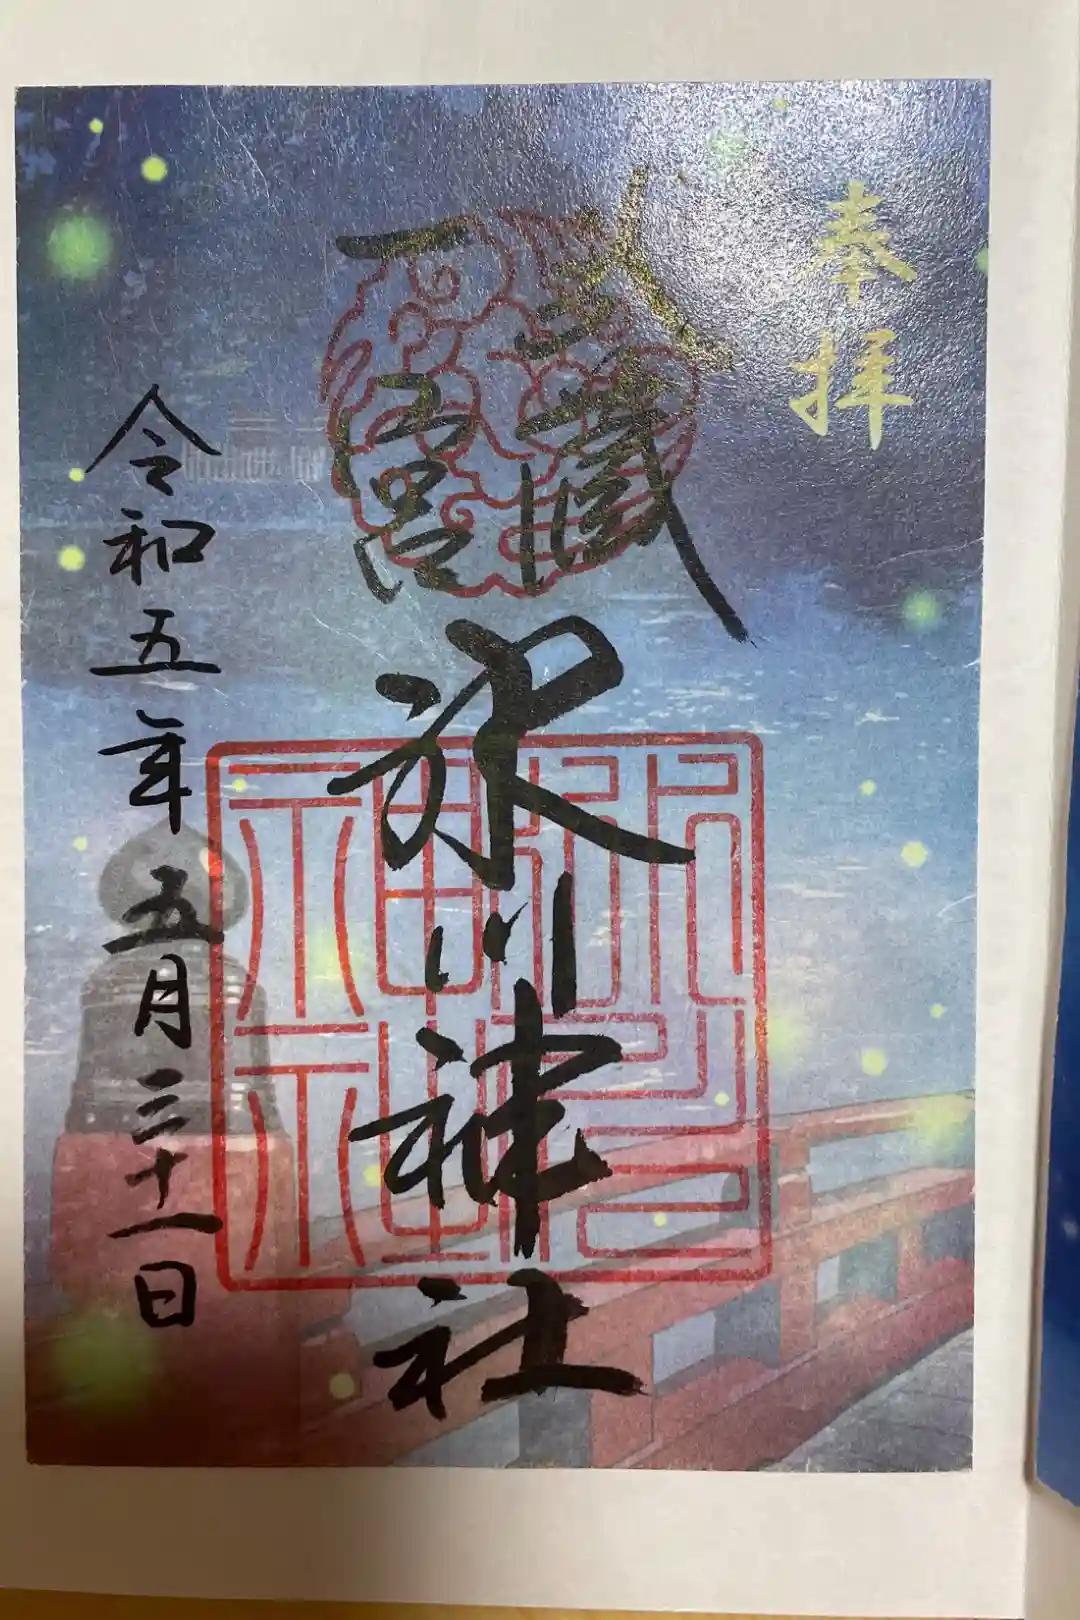 奉拝
武蔵
一宮
氷川神社
氷川
神社
之印
令和五年五月三十一日